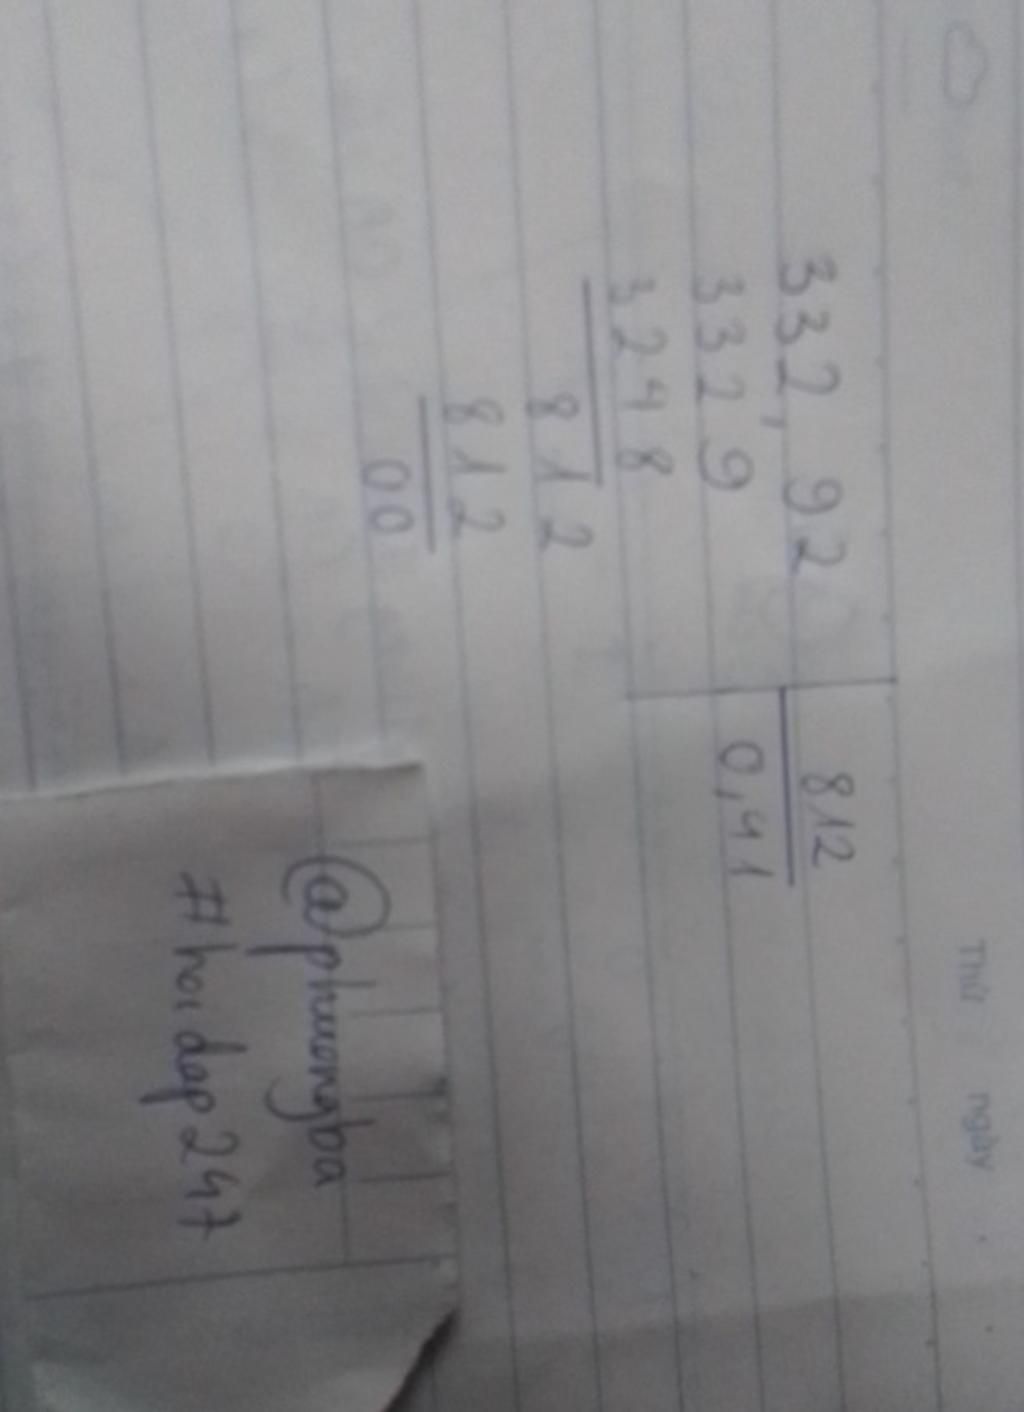 Thứ ngày
332,92 812
3329 0,41
3248
812
812
00
@phuongba
#hoidap247